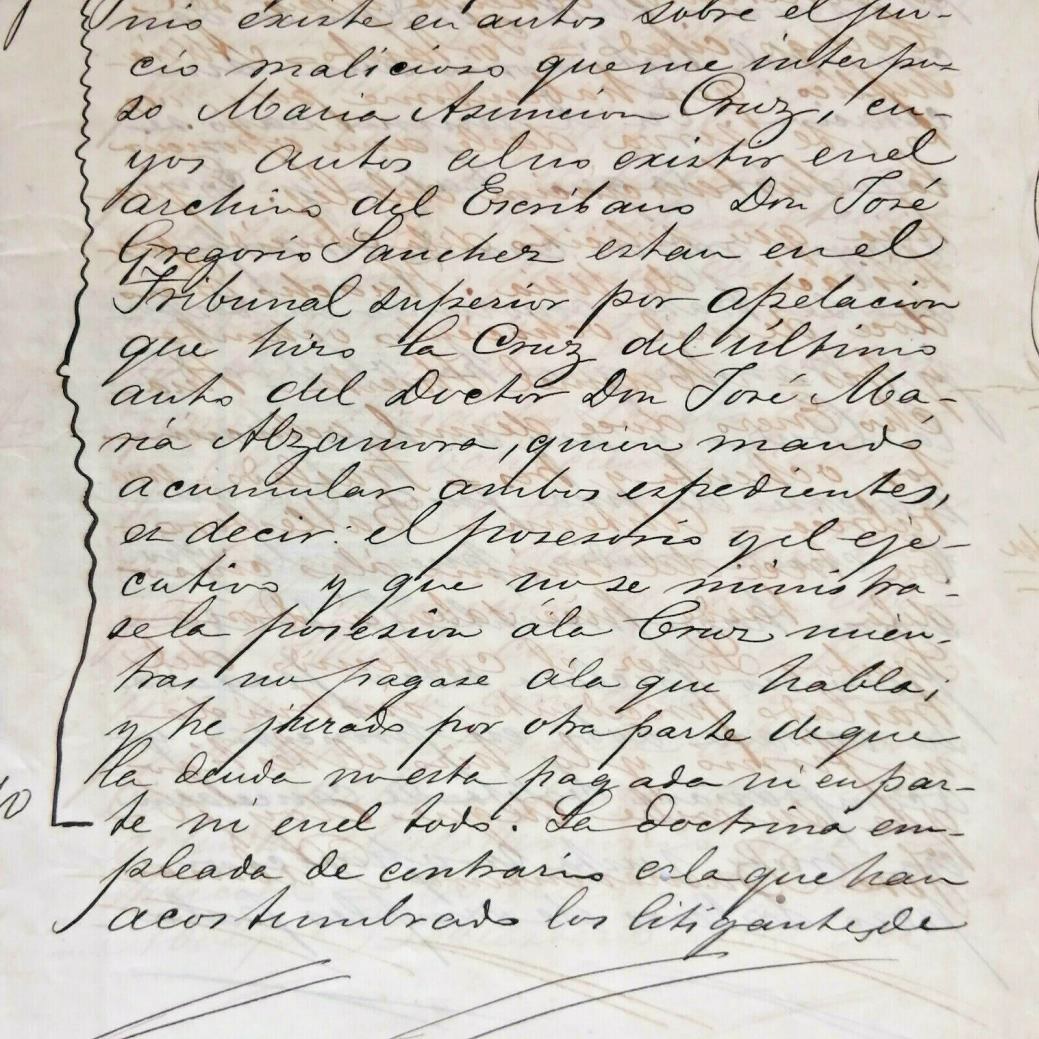 nio existe en autos sobre el jui-
cio malicioso que me interpu-
so Maria Asuncion Cruz, cu-
yos autos al no existir en el
archivo del Escribano Don José
Gregorio Sanchez estan en el
Tribunal superior por apelacion
que hizo la Cruz del último
auto del Doctor Don José Ma-
ría Alzamora, quien mandó
acumular ambos espedientes,
es decir: el posesorio y el eje-
cutivo y que no se ministra-
se la posesion á la Cruz mien-
tras no pagase á la que habla;
y he jurado por otra parte de que
la deuda no esta pagada ni en par-
te ni en el todo. La doctrina em-
pleada de contrario es la que han
acostumbrado los litigantes de